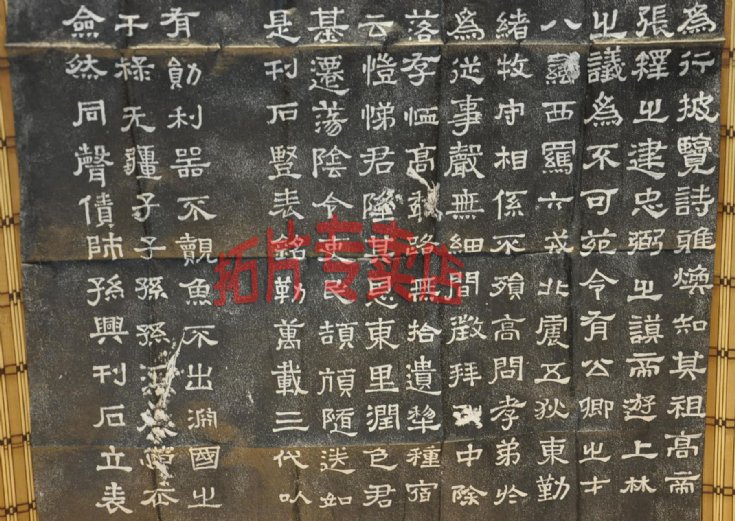 為行披覽詩雅煥知其祖高帝
張釋之建忠弼之謨帝遊上林
之議為不可苑令有公卿之才
八蠻西羈六戎北震五狄東勤
緒牧守相係不殞高問孝弟於
為從事聲無細聞徵拜中除
落存恤高年路無拾遺犁種宿
云愷悌君隆其恩東里潤色君
基遷蕩陰令吏民頡頏隨送如
是刊石豎表銘勒萬載三代以
有勛利器不覿魚不出淵國之
干祿无疆子子孫孫
僉然同聲僨師孫興刊石立表
拓片专卖店